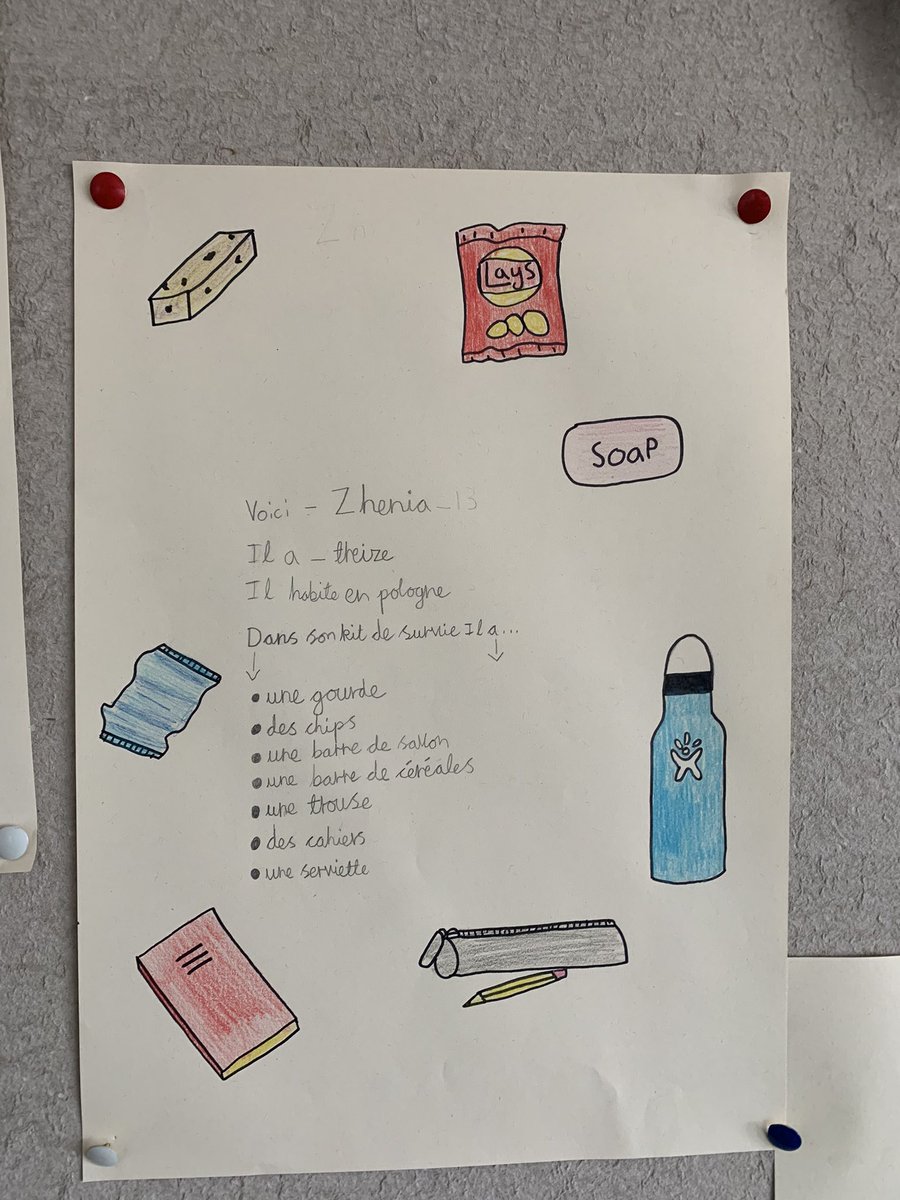 Lays
Soap
Voici - Zhenia - 13
Il a - treize
Il habite en pologne
Dans son kit de survie Il a...
• une gourde
• des chips
• une barre de sallon
• une barre de céréales
• une trouse
• des cahiers
• une serviette